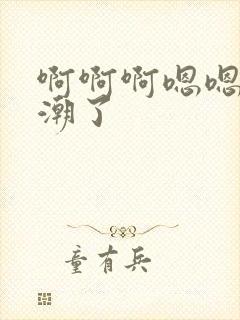 啊啊啊嗯嗯
潮了
童有兵